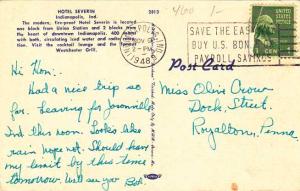 HOTEL SEVERIN
Indianapolis, Ind.
2613
The modern, fire-proof Hotel Severin is located one block from Union Station and 2 blocks from the heart of downtown Indianapolis. 400 rooms with bath, circulating iced water and radio
Visit the cocktail lounge and the famous Weathervane Grill.
460 1-
1948
SAVE THE EASY
BUY U.S. BON
PAYROLL SAVINGS
Post Card
Hi Hon:
Had a nice trip so
far. Leaving for
this noon. Looks like
rain hope not. Should have
my limit by this time
tomorrow. Will see you Bob
Miss Olive Crow
Dock Street.
Royalton, Penna.